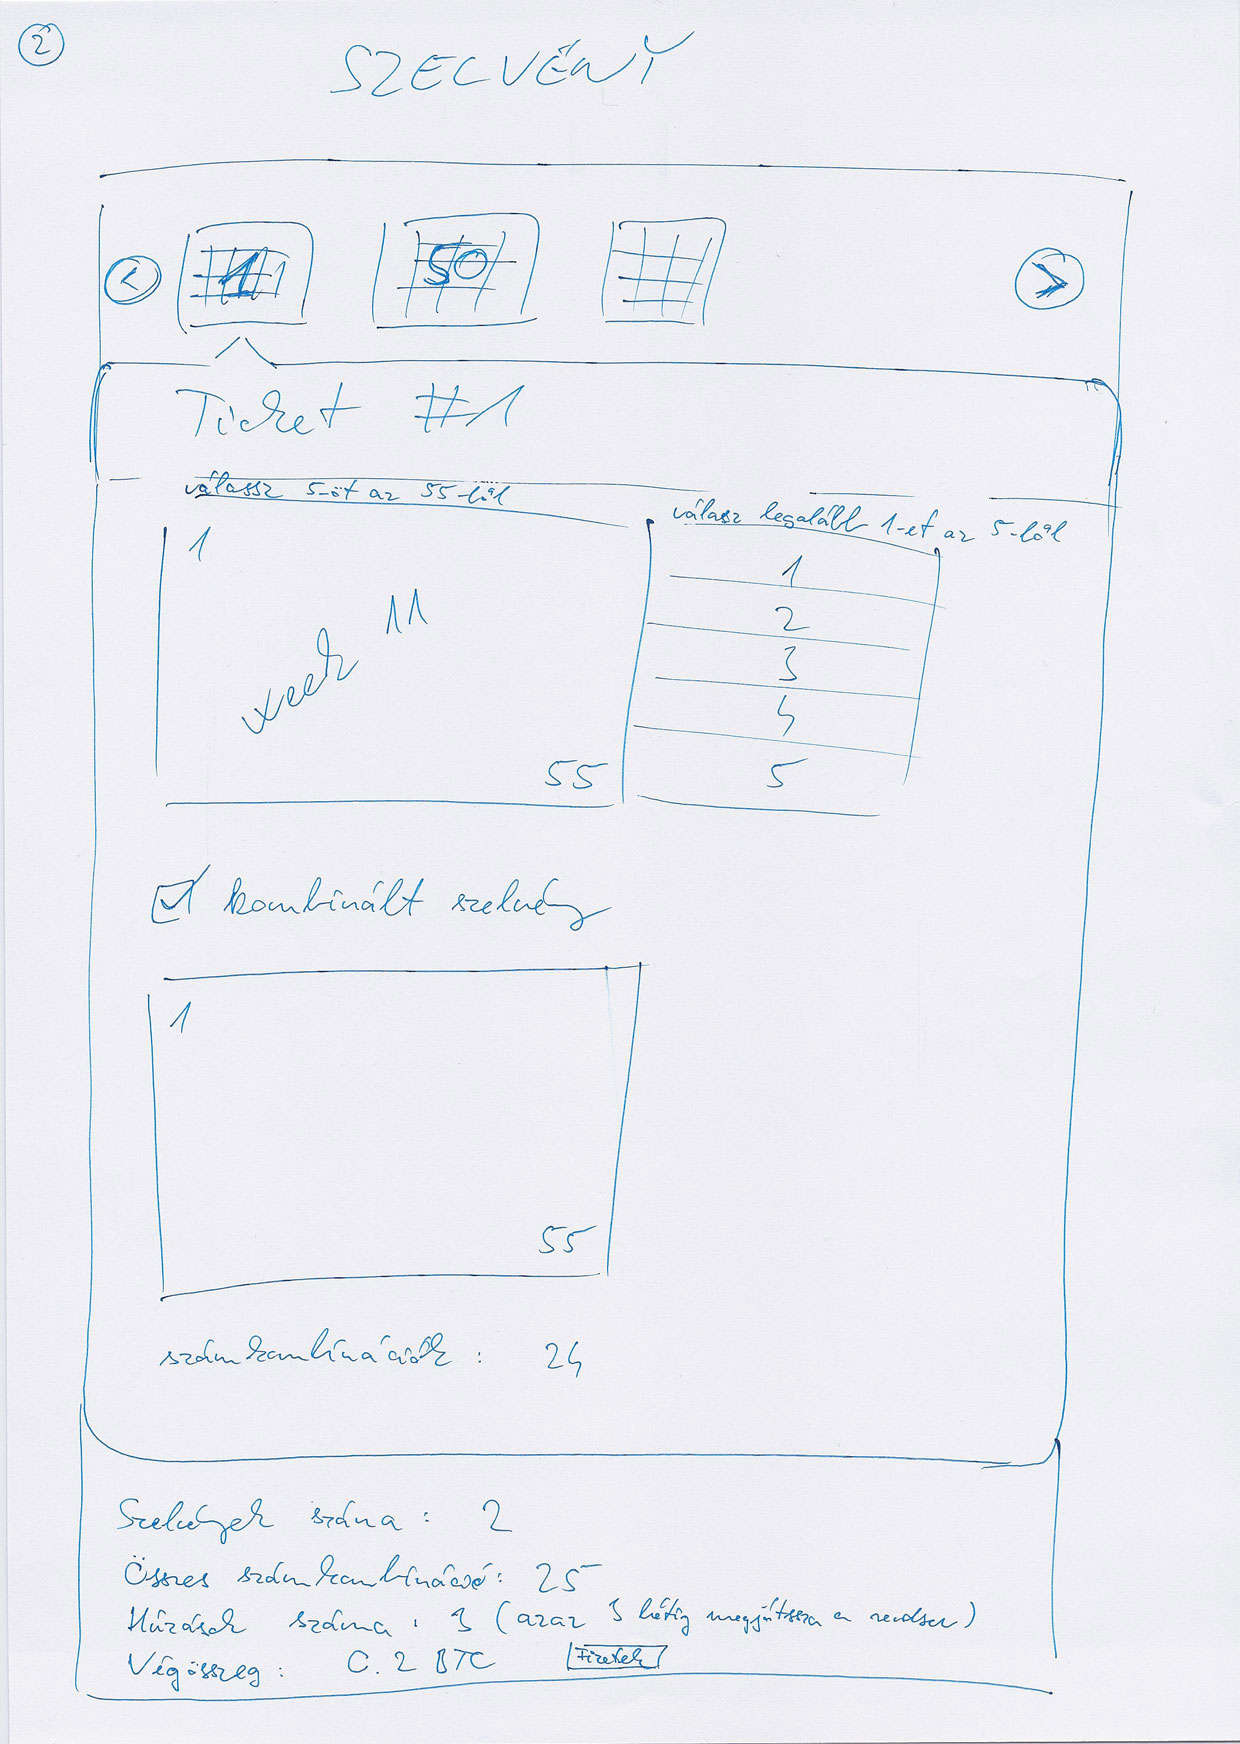 2
SZELVÉNY
< 1 50 >
Ticket #1
válassz 5-öt az 55-ből
válasz legalább 1-et az 5-ből
1
week 11
55
1
2
3
4
5
kombinált szelvény
1
55
számkombinációk : 24
Szelvények száma : 2
Összes számkombináció: 25
Húzások száma : 3 (azaz 3 hétig megjátssza a rendszer)
Végösszeg : 0.2 BTC
Fizetek